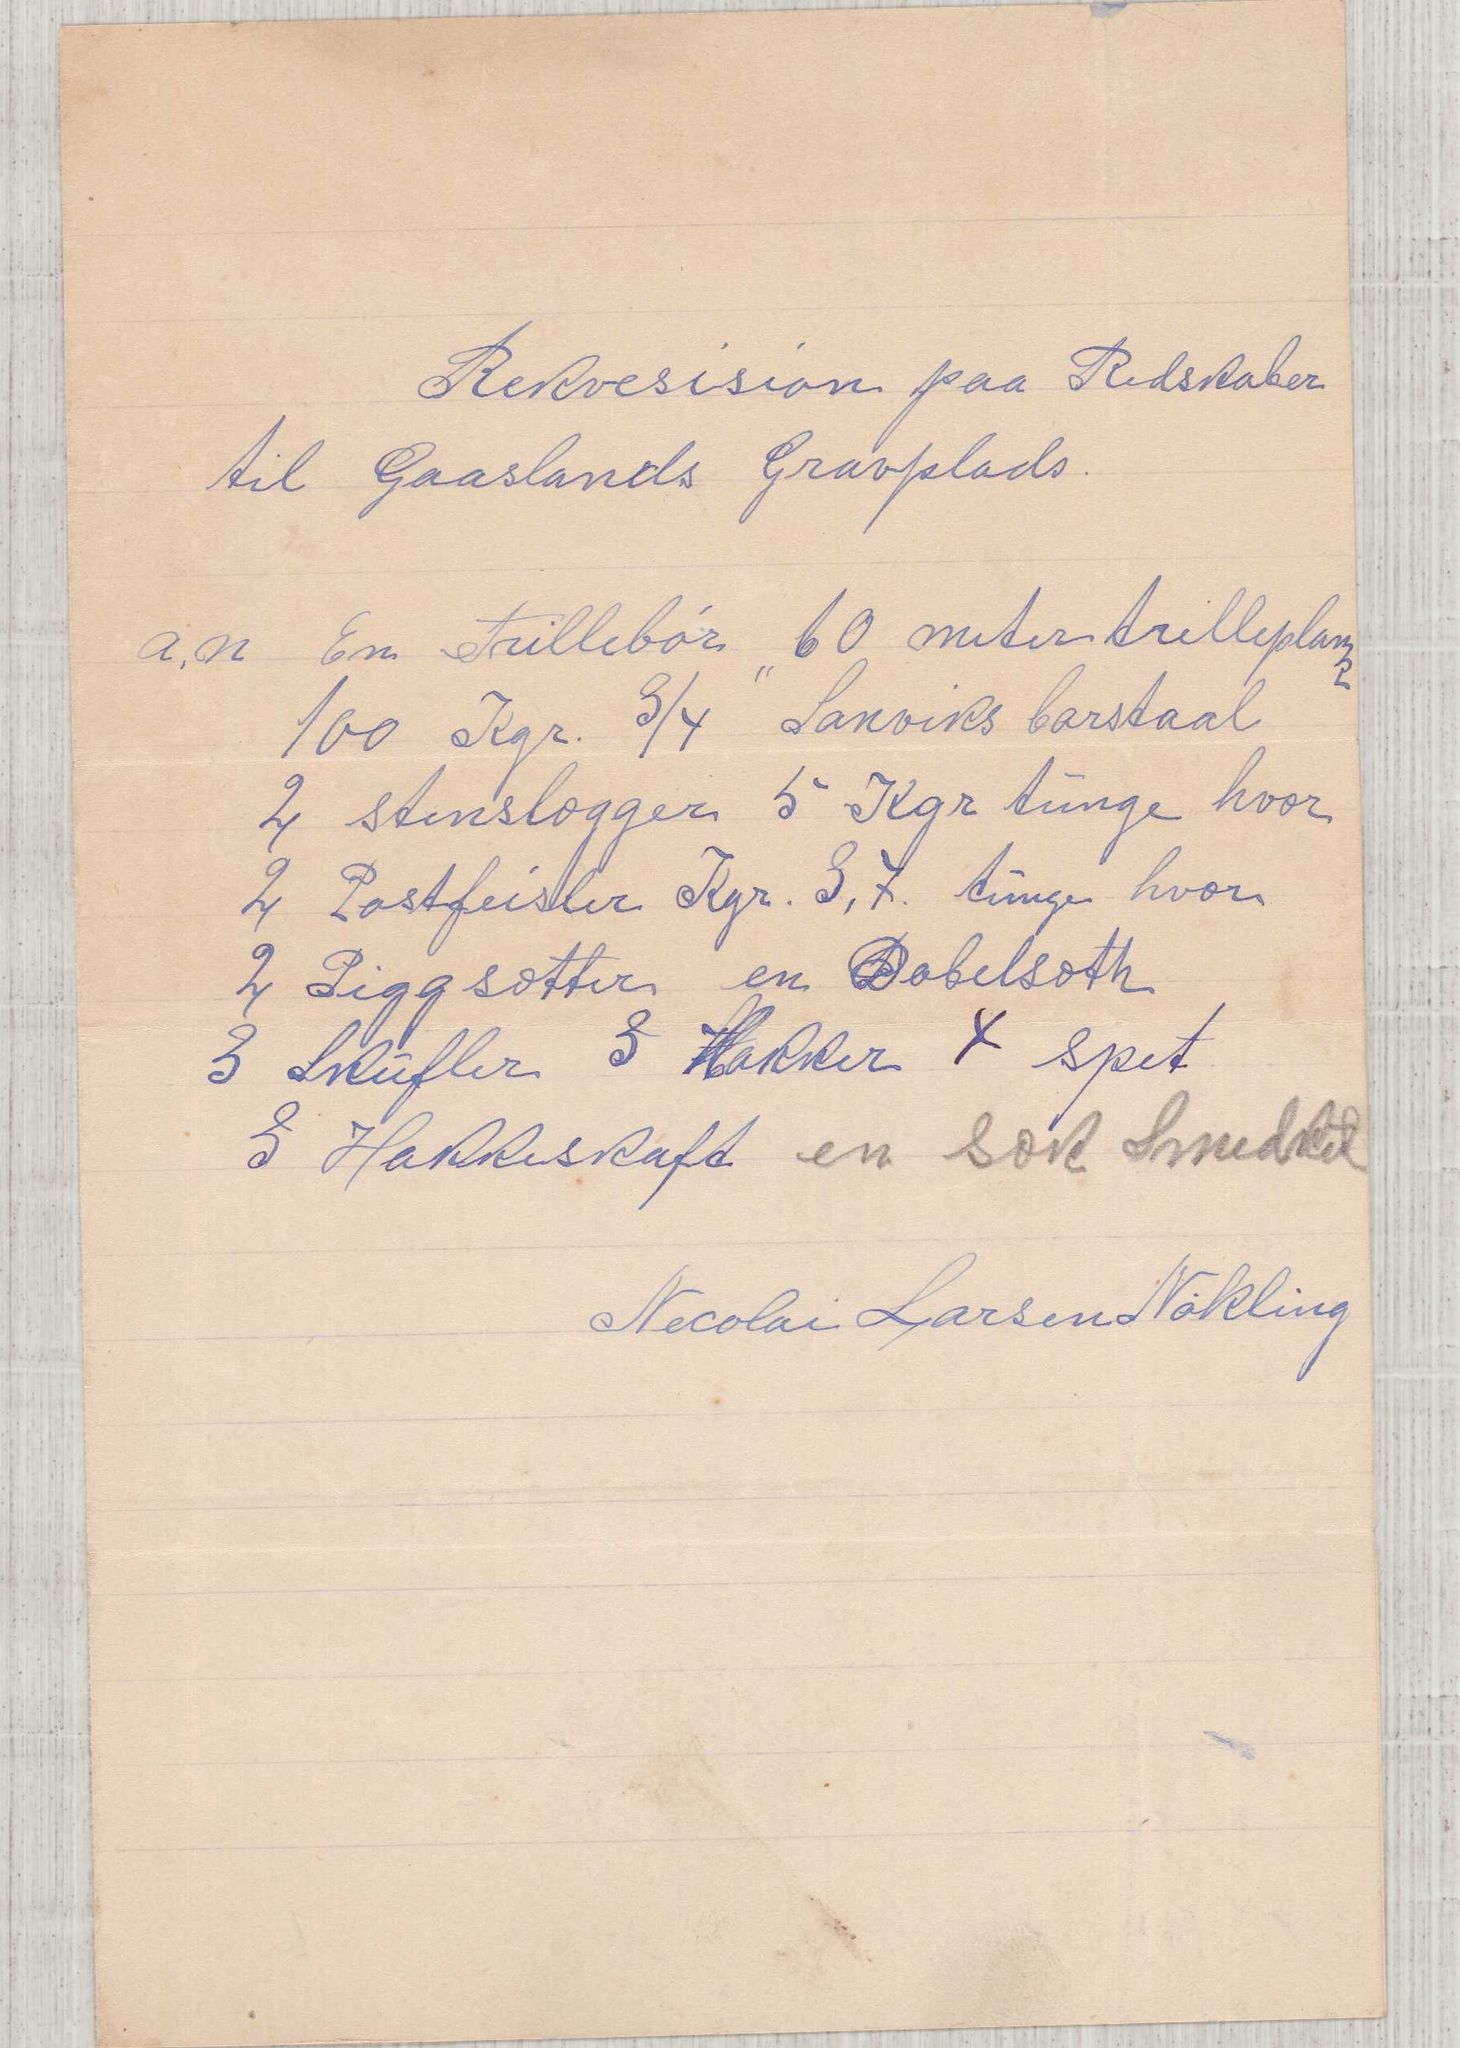 Rekvesision paa Redskaber
til Gaaslands Gravplads.
a,n En Trillebör 60 meter trilleplank
100 Kgr. 3/4" Sanviks barstaal
2 stenslægger 5 Kgr tünge hvor
2 Postfeisler Kgr. 3,7. tünge hvor
2 Piggsætter en Dobelsæth
3 Sküfler 3 Hakker 4 spet
3 Hakkeskaft en sæk
Necolai Larsen Nökling